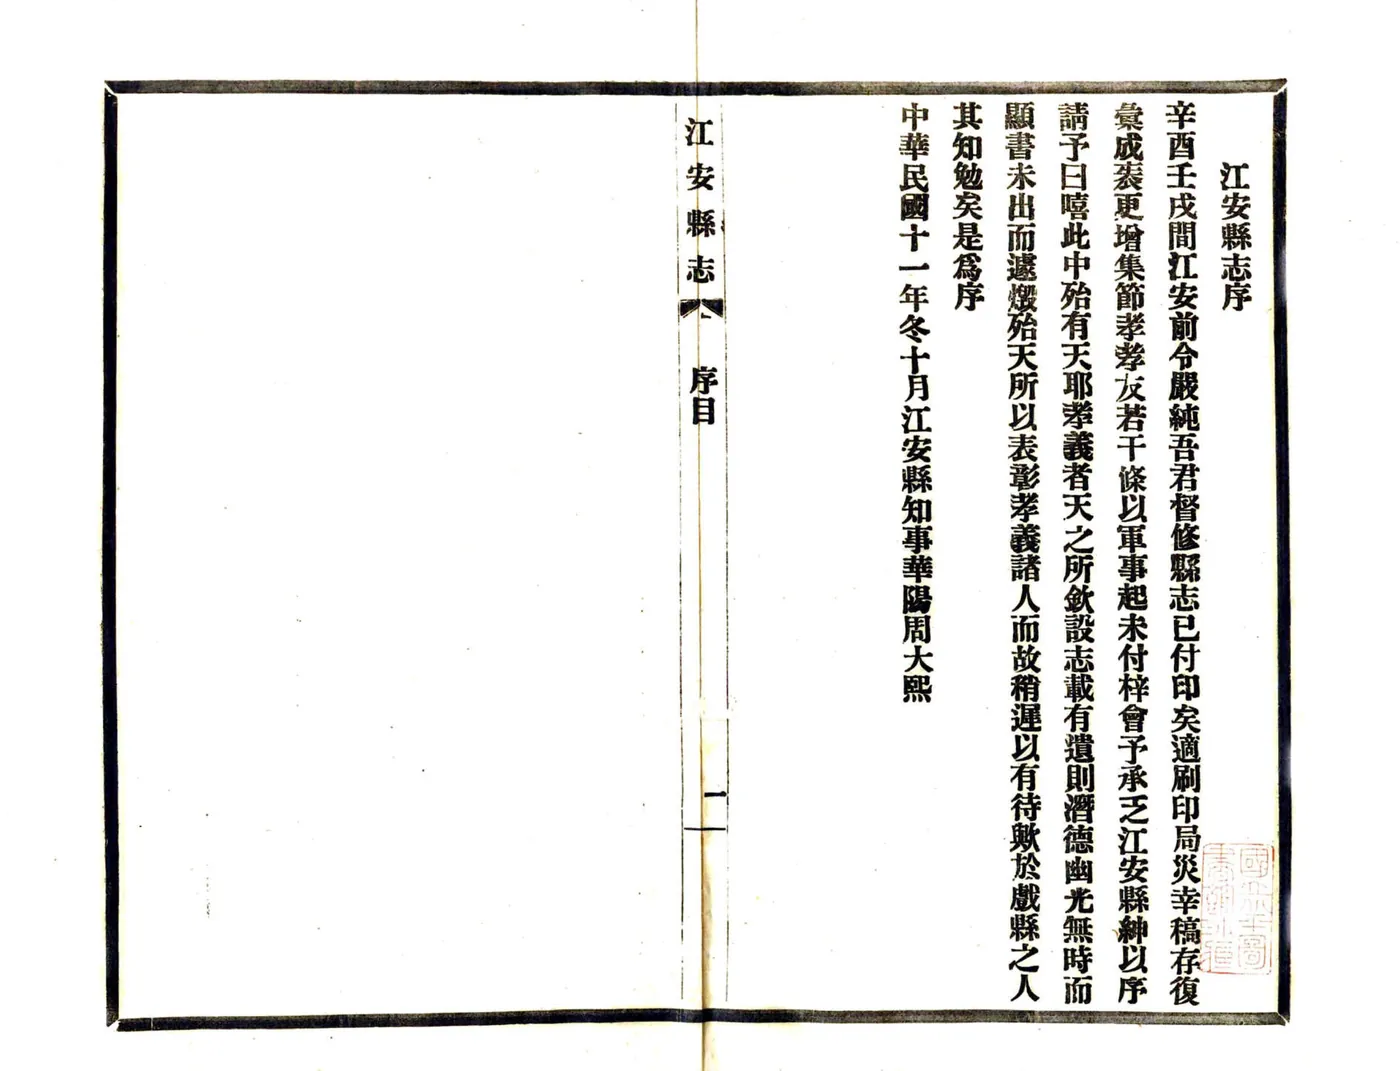 江安縣志序
辛酉壬戌間江安前令嚴純吾君督修縣志已付印矣適刷印局災幸稿存復
彙成裘更增集節孝孝友若干條以軍事起未付梓會予承乏江安縣紳以序
請予曰嘻此中殆有天耶孝義者天之所欽設志載有遺則潛德幽光無時而
顯書未出而遽燬殆天所以表彰孝義諸人而故稍遲以有待歟於戲縣之人
其知勉矣是爲序
中華民國十一年冬十月江安縣知事華陽周大熙
江安縣志
序目
一